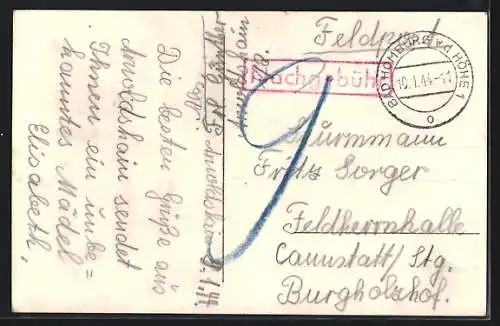 Feldpost
Nachgebühr
BAD HOMBURG v.d. HÖHE 1
10.1.44
o
9
Sturmmann
Fritz Sorger
Feldherrnhalle
Cannstatt/Stg.
Burgholzhof.
Arnoldshain
Arnoldshain 9.1.44.
Die besten Grüße aus
Arnoldshain sendet
Ihnen ein unbe=
kanntes Mädel
Elisabeth.